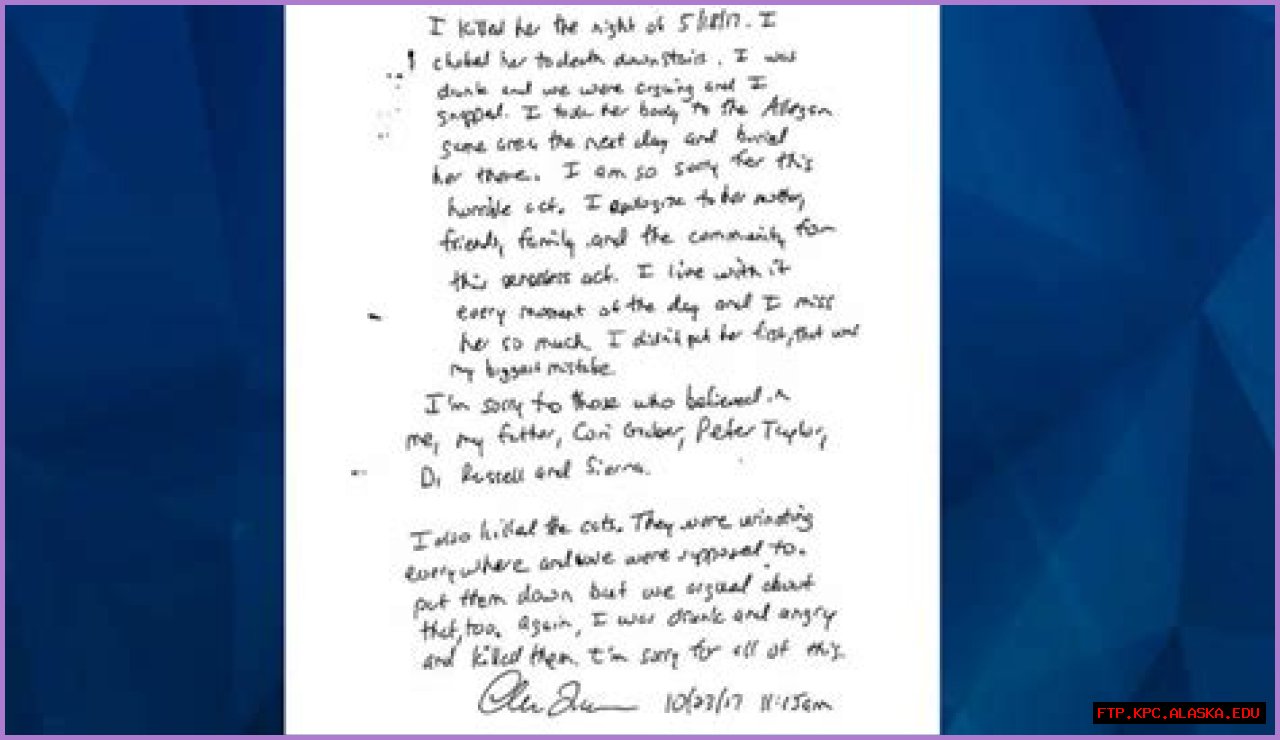 I killed her the night of 5/18/17. I
choked her to death downstairs. I was
drunk and we were arguing and I
snapped. I took her body to the Allegan
game area the next day and buried
her there. I am so sorry for this
horrible act. I apologize to her mother,
friends, family and the community for
this senseless act. I live with it
every moment of the day and I miss
her so much. I didn't put her first, that was
my biggest mistake.
I'm sorry to those who believed in
me, my father, Cori Peter Taylor,
Russell and Sierra.
I also killed the cats. They were urinating
everywhere and we were supposed to
put them down but we argued about
that, too. Again, I was drunk and angry
and killed them. I'm sorry for all of this.
10/23/17 11:15am
FTP.KPC.ALASKA.EDU